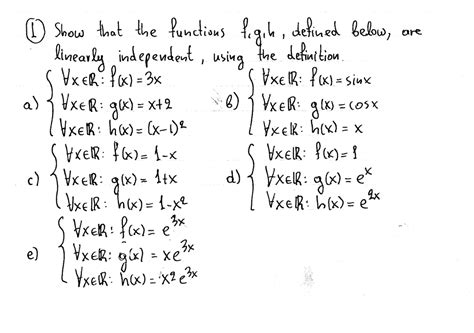 ① Show that the functions f,g,h, defined below, are
linearly independent, using the definition.
a) { ∀x∈ℝ: f(x) = 3x
∀x∈ℝ: g(x) = x+2
∀x∈ℝ: h(x) = (x-1)²
b) { ∀x∈ℝ: f(x) = sinx
∀x∈ℝ: g(x) = cosx
∀x∈ℝ: h(x) = x
c) { ∀x∈ℝ: f(x) = 1-x
∀x∈ℝ: g(x) = 1+x
∀x∈ℝ: h(x) = 1-x²
d) { ∀x∈ℝ: f(x) = 1
∀x∈ℝ: g(x) = eˣ
∀x∈ℝ: h(x) = e²ˣ
e) { ∀x∈ℝ: f(x) = e³ˣ
∀x∈ℝ: g(x) = xe³ˣ
∀x∈ℝ: h(x) = x²e³ˣ